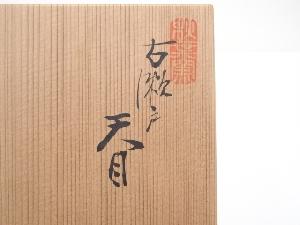 古瀬戸
天目